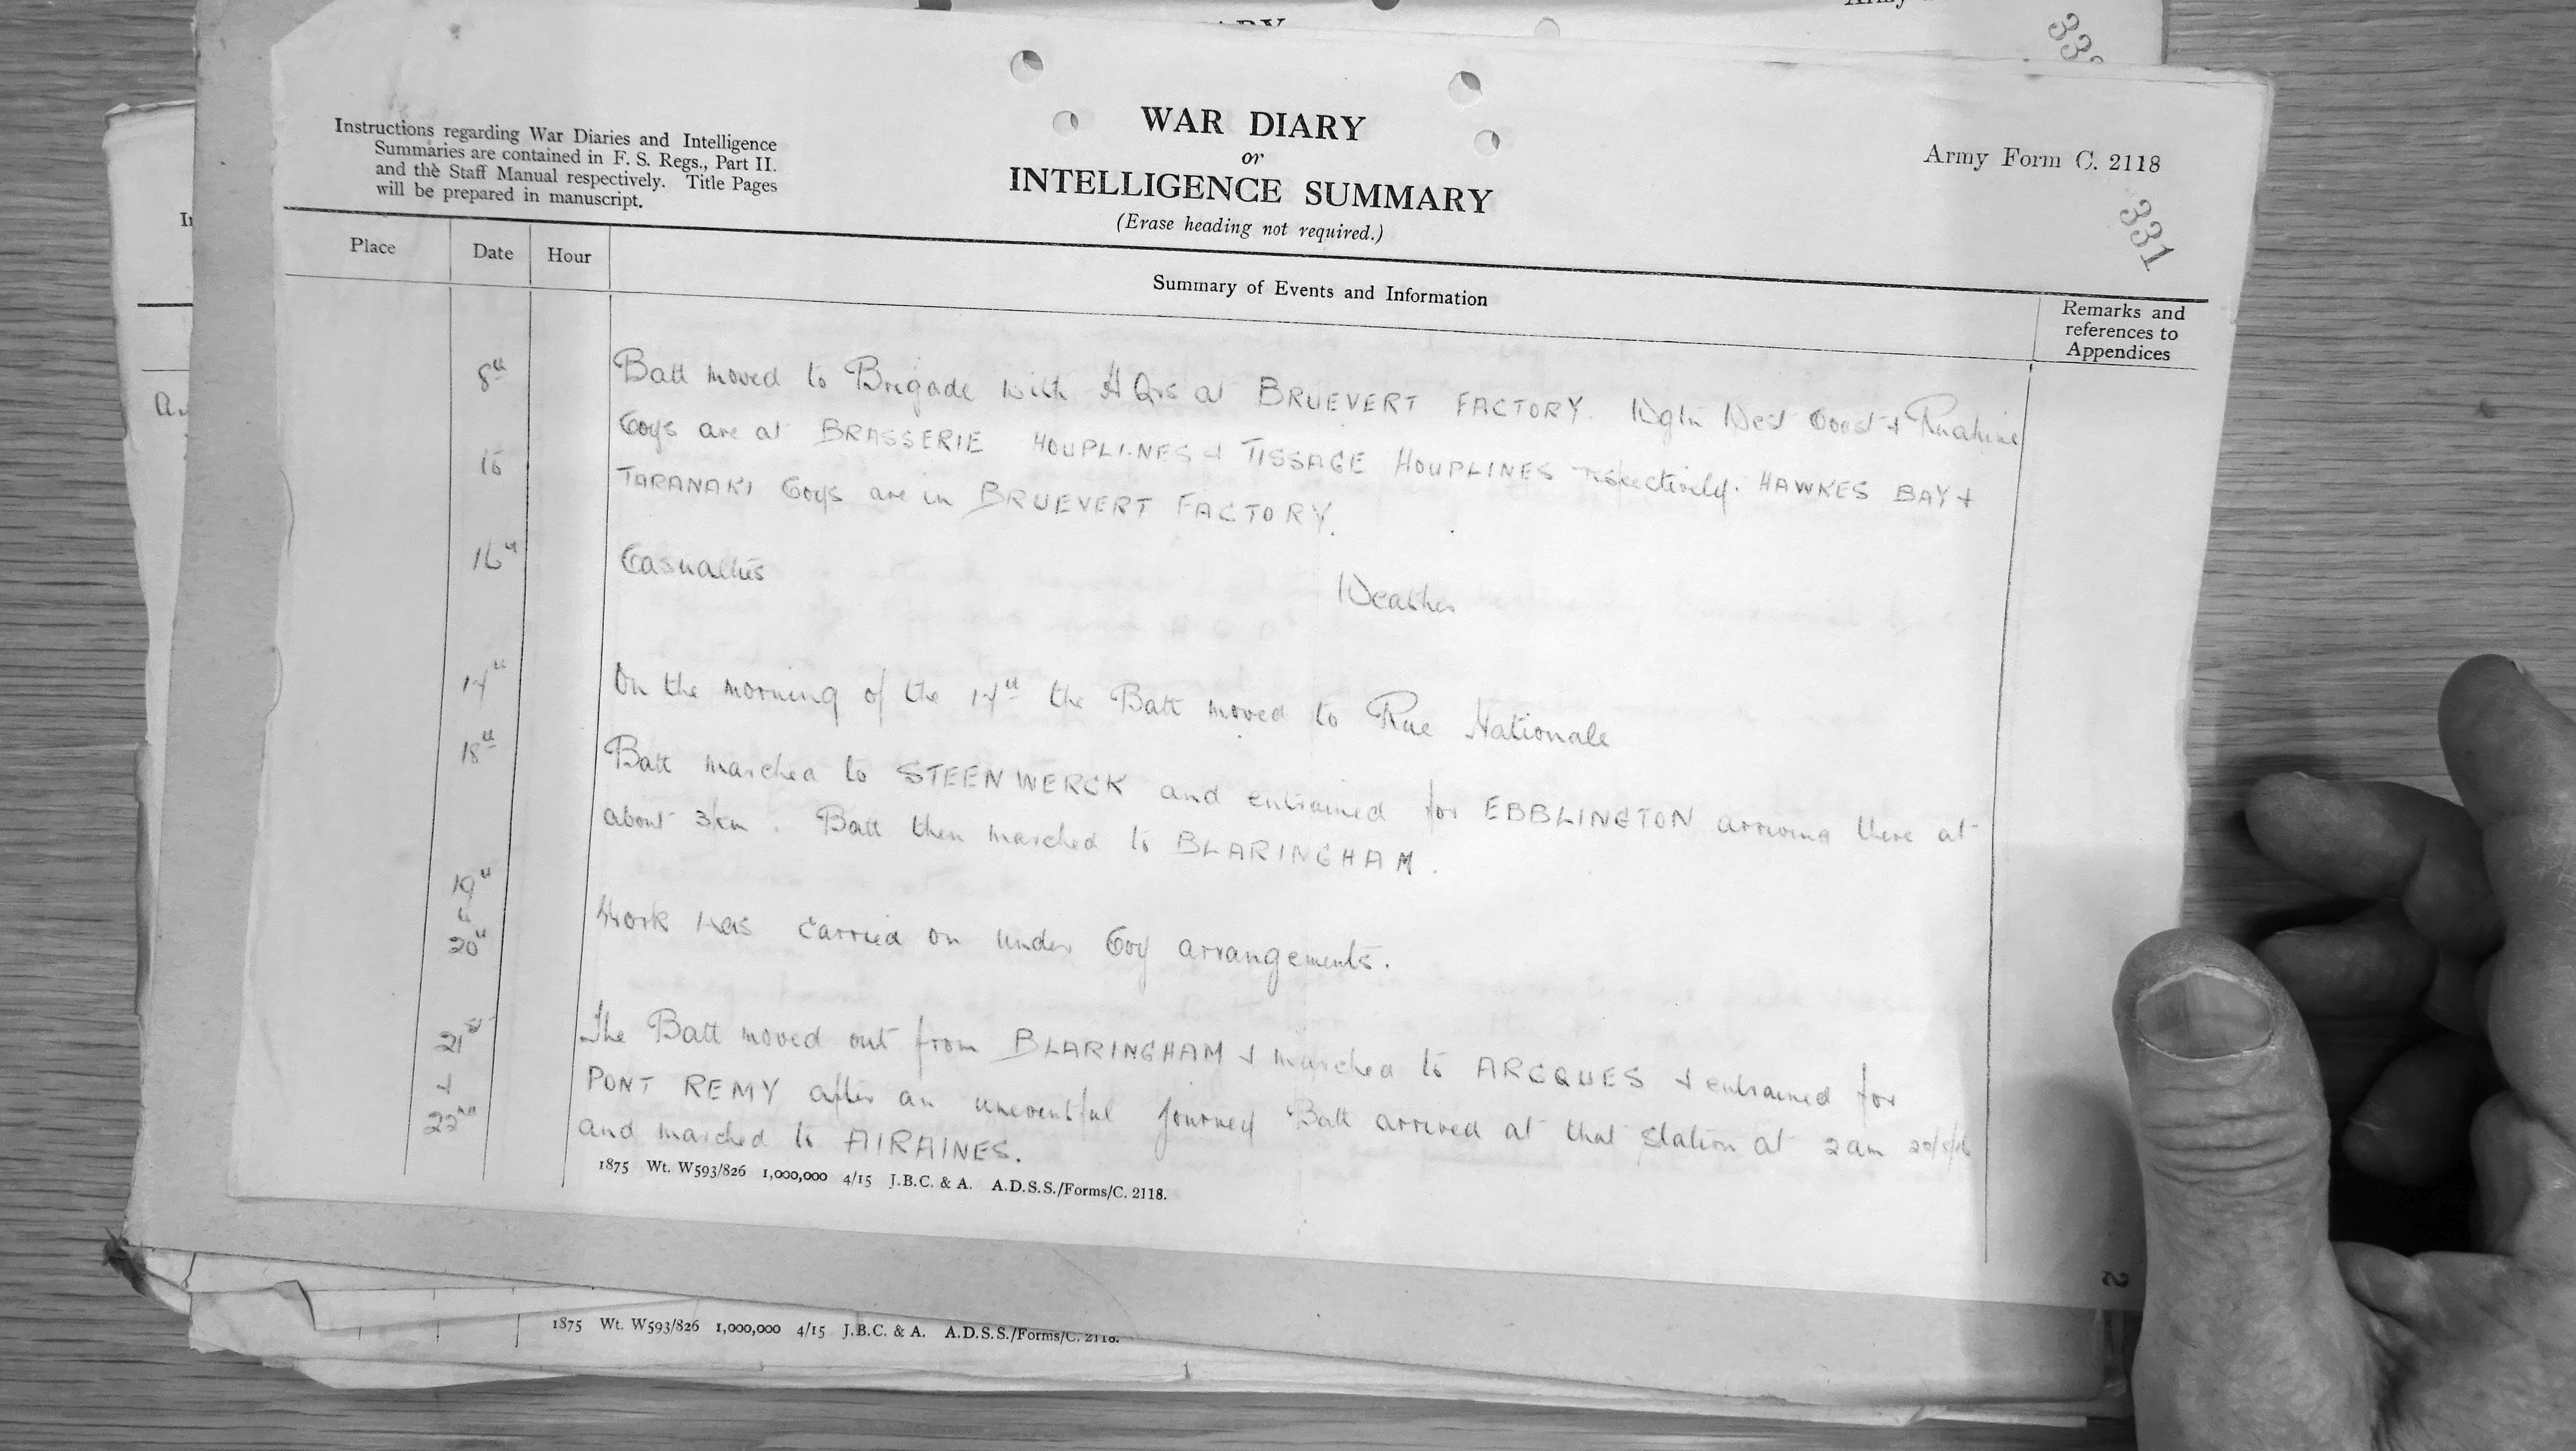 Army
ARY
33
Instructions regarding War Diaries and Intelligence
Summaries are contained in F. S. Regs., Part II.
and the Staff Manual respectively. Title Pages
will be prepared in manuscript.
WAR DIARY
or
INTELLIGENCE SUMMARY
(Erase heading not required.)
Army Form C. 2118
331
Place
Date
Hour
Summary of Events and Information
Remarks and
references to
Appendices
8th Batt moved to Brigade with H Qrs at BRUEVERT FACTORY. Wgtn West Coast + Ruahine
Coys are at BRASSERIE HOUPLINES + TISSAGE HOUPLINES respectively. HAWKES BAY +
to TARANAKI Coys are in BRUEVERT FACTORY.
16th Casualties Weather
17th On the morning of the 17th the Batt moved to Rue Nationale
18th Batt marched to STEENWERCK and entrained for EBBLINGTON arriving there at
about 3pm. Batt then marched to BLARINGHAM.
19th
&
20th Work was carried on under Coy arrangements.
21st The Batt moved out from BLARINGHAM + marched to ARCQUES + entrained for
+ PONT REMY after an uneventful journey Batt arrived at that station at 2 am
22nd and marched to AIRAINES.
1875 Wt. W593/826 1,000,000 4/15 J.B.C. & A. A.D.S.S./Forms/C. 2118.
1875 Wt. W593/826 1,000,000 4/15 J.B.C. & A. A.D.S.S./Forms/C. 2118.